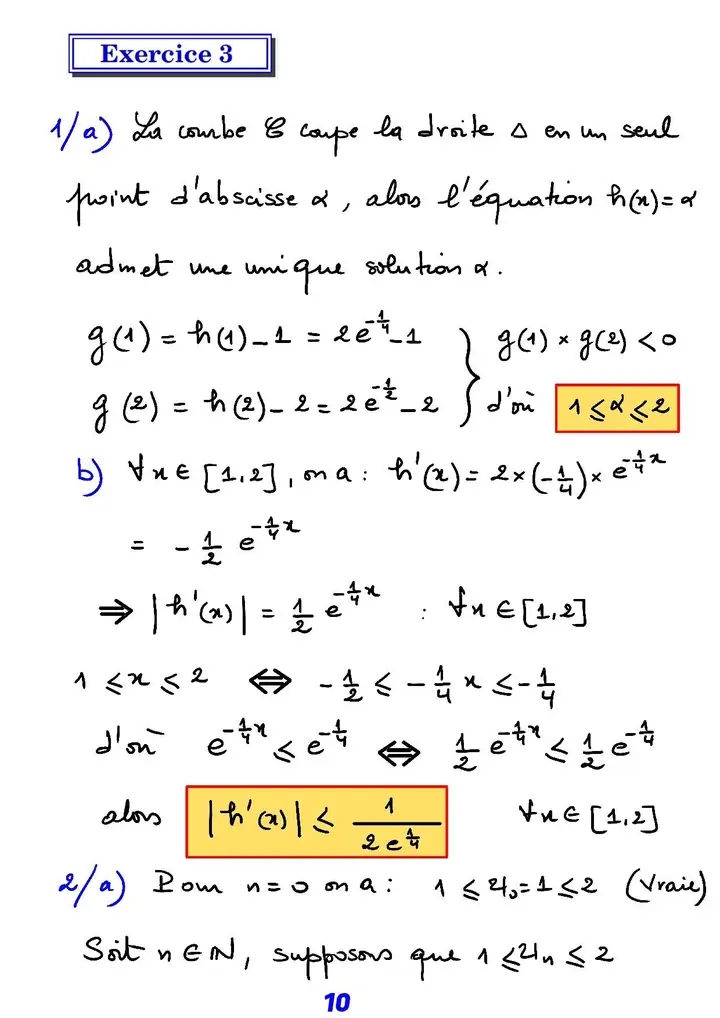 Exercice 3
1/a) La courbe C coupe la droite Δ en un seul
point d'abscisse α, alors l'équation h(x)=α
admet une unique solution α.
g(1) = h(1)-1 = 2e^{-1/4}-1 } g(1) × g(2) < 0
g(2) = h(2)-2 = 2e^{-1/2}-2 } d'où 1 ⩽ α ⩽ 2
b) ∀x∈[1,2], on a : h'(x) = 2×(-1/4)× e^{-1/4 x}
= -1/2 e^{-1/4 x}
⇒ |h'(x)| = 1/2 e^{-1/4 x} : ∀x∈[1,2]
1 ⩽ x ⩽ 2 ⇔ -1/2 ⩽ -1/4 x ⩽ -1/4
d'où e^{-1/4 x} ⩽ e^{-1/4} ⇔ 1/2 e^{-1/4 x} ⩽ 1/2 e^{-1/4}
alors |h'(x)| ⩽ 1/(2e^{1/4}) ∀x∈[1,2]
2/a) Pour n=0 on a : 1 ⩽ U₀=1 ⩽ 2 (Vraie)
Soit n∈ℕ, supposons que 1 ⩽ Uₙ ⩽ 2
10